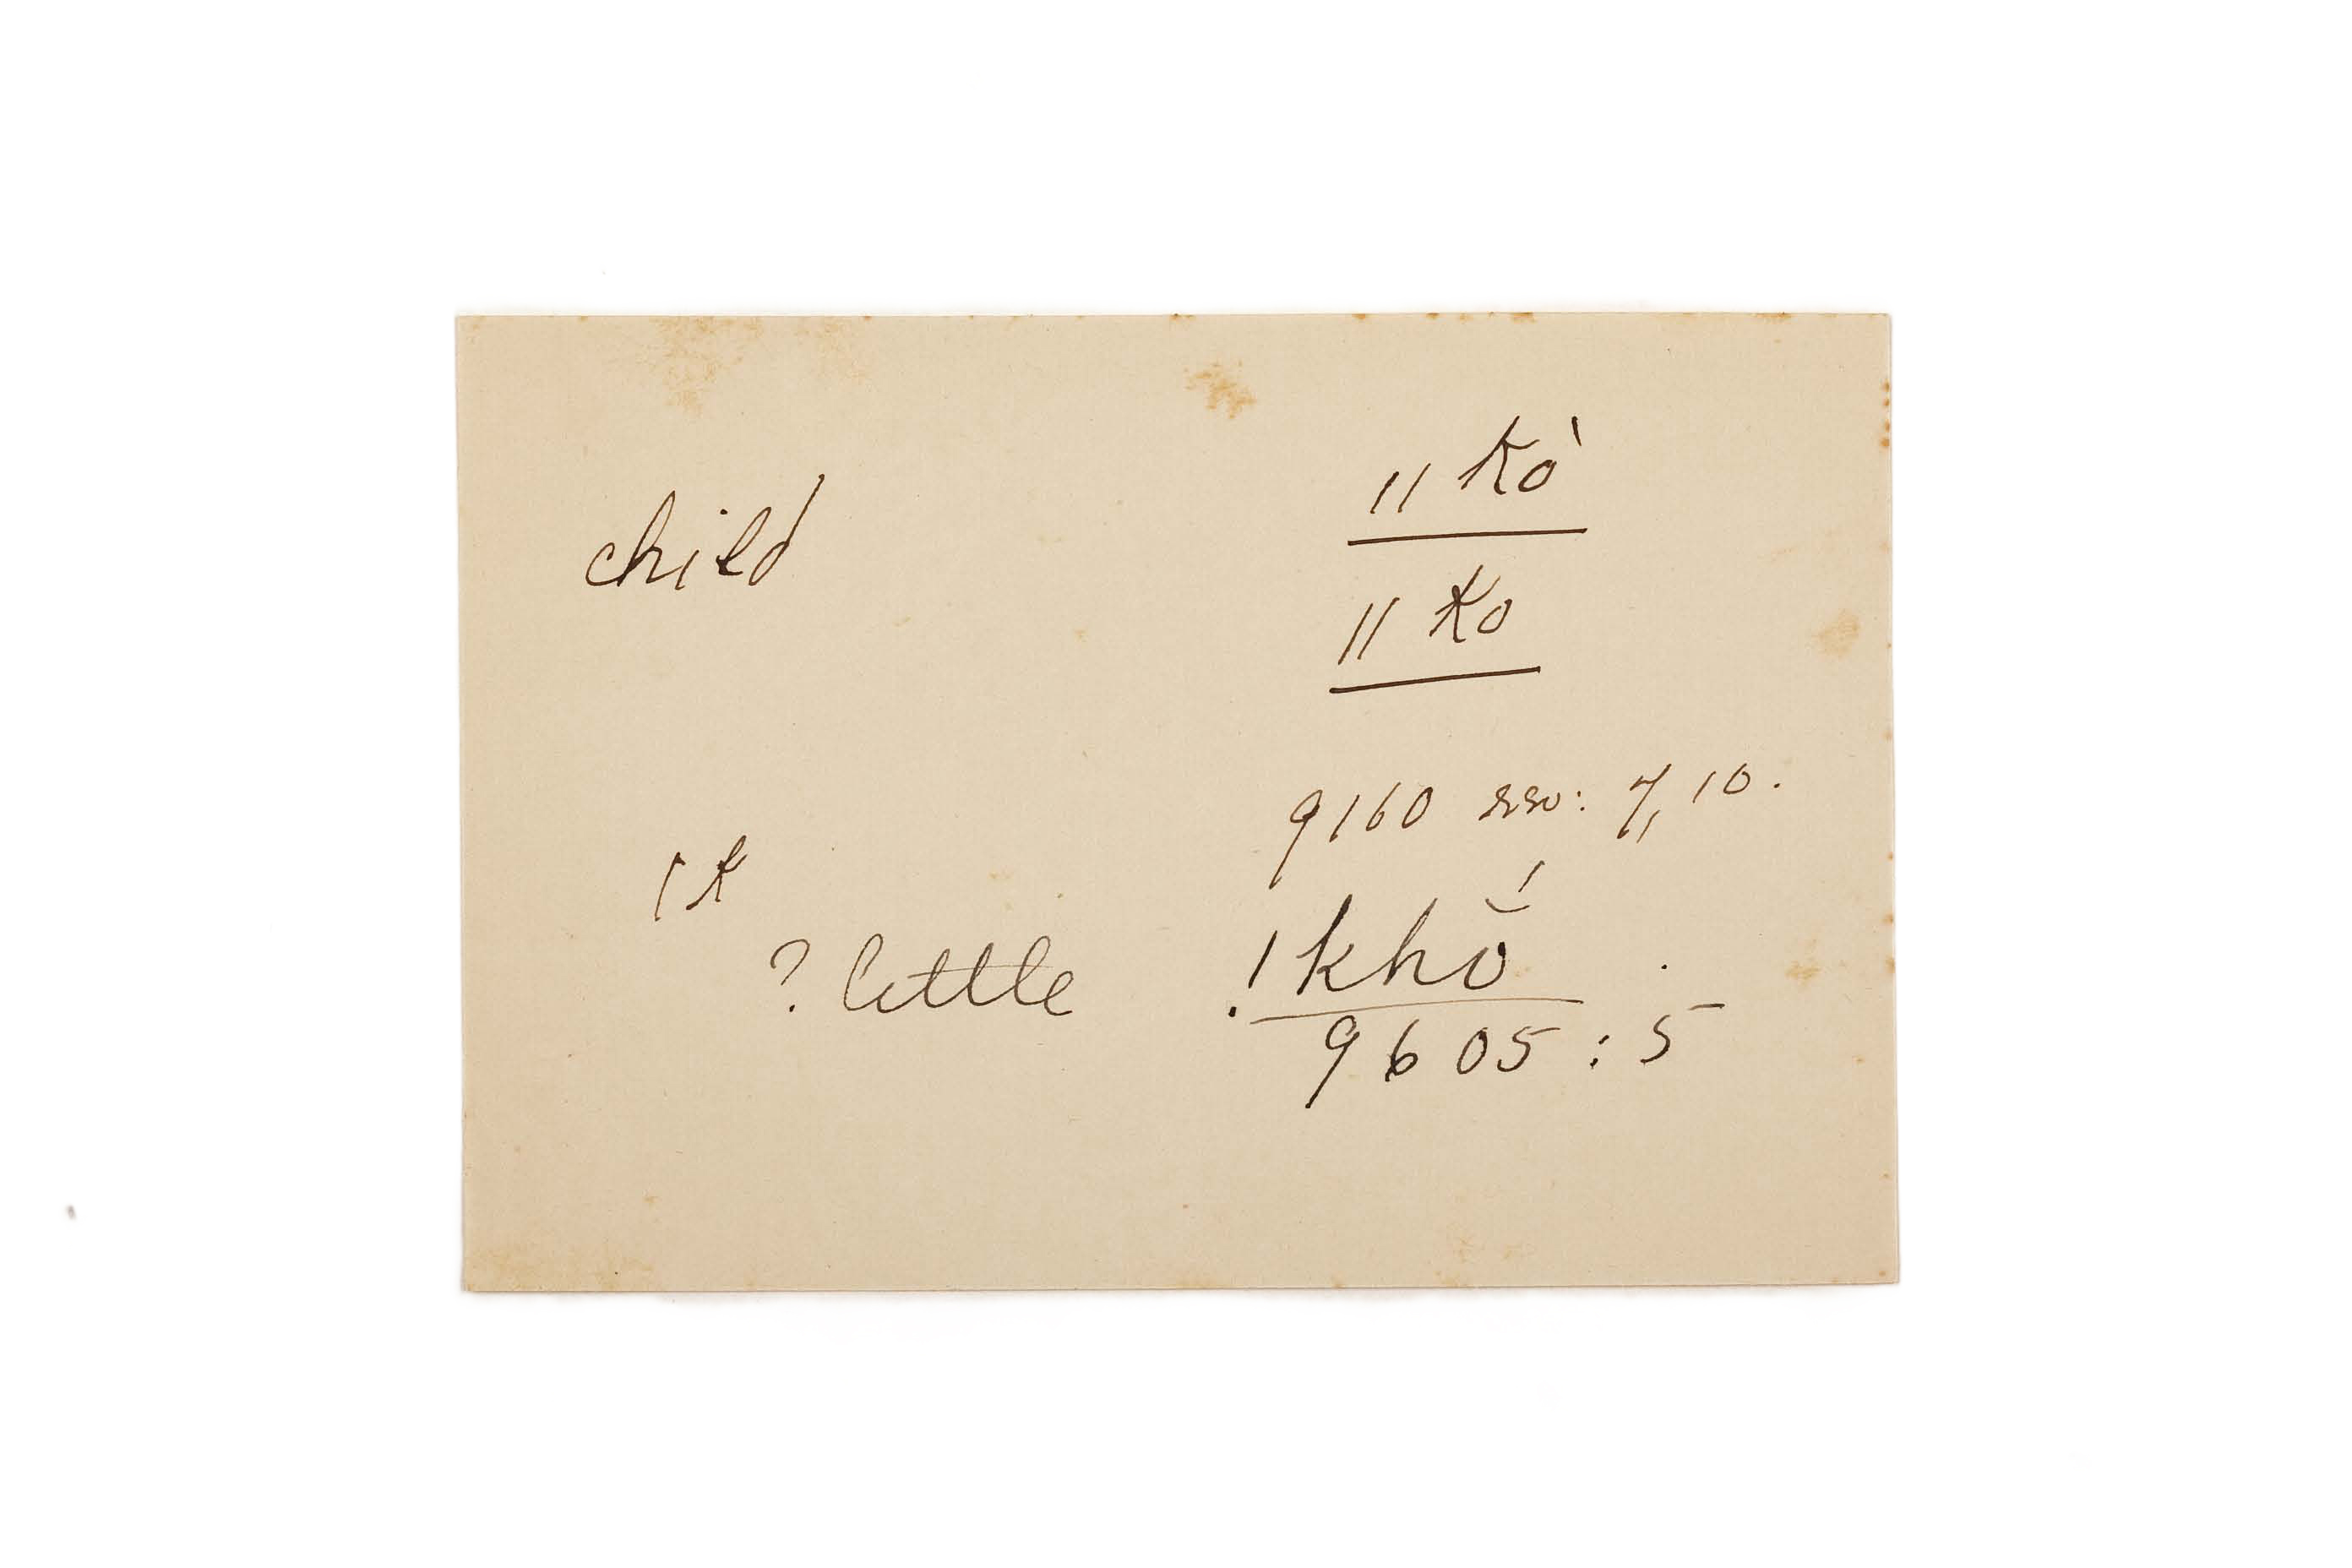 child ǁkò
ǁko
9160 rev: 7, 10.
ǀk
? little !khŏ́
9605 : 5